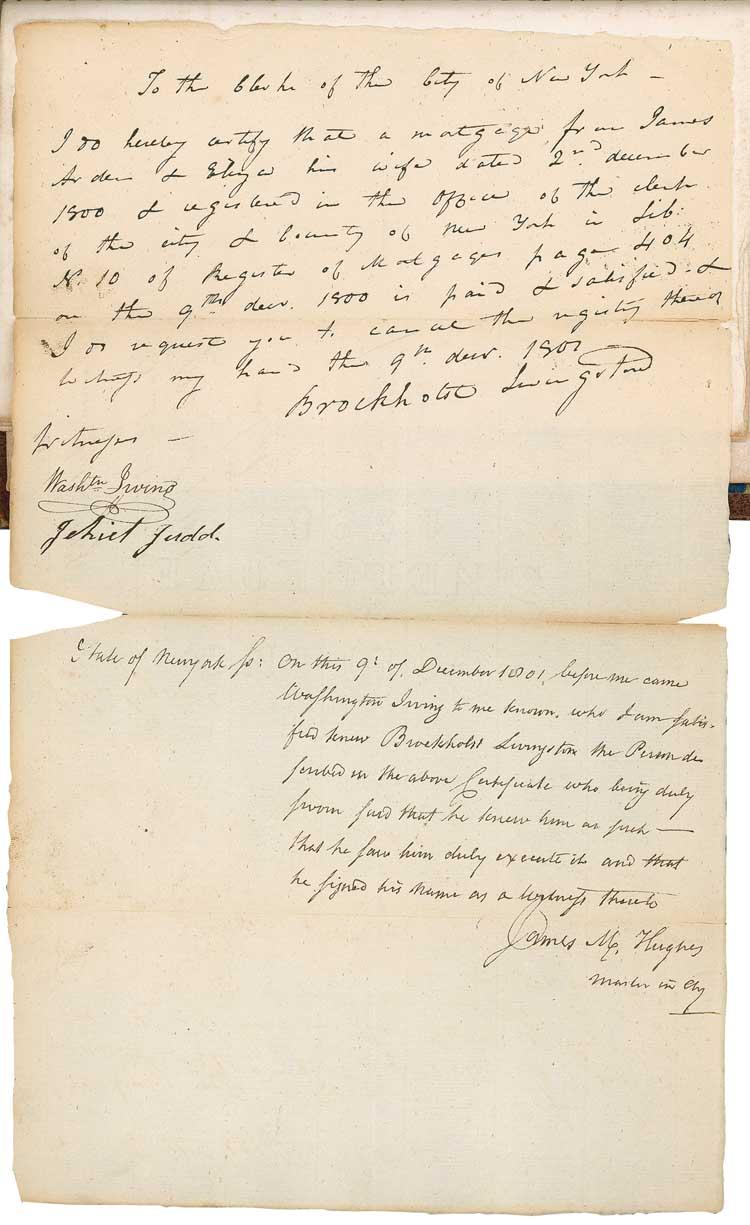 To the Clerke of the City of New York —
I do hereby certify that a mortgage from James
Arden & Eliza his wife dated 2nd december
1800 & registered in the Office of the clerk
of the city & County of New York in Lib:
No. 10 of Register of Mortgages page 404
on the 9th decr. 1800 is paid & satisfied & 
I do request you to cancel the registry thereof
Witness my hand this 9th decr. 1801 —
Brockholst Livingston
Witnesses —
Washtn Irving
Jehiel Judd.
State of Newyork ss: On this 9th of December 1801, before me came
Washington Irving to me known, who I am satis-
fied knew Brockholst Livingston the Person de
scribed in the above Certificate who being duly
sworn said that he knew him as such —
that he saw him duly execute it and that
he signed his name as a witness thereto
James M. Hughes
Master in Chy